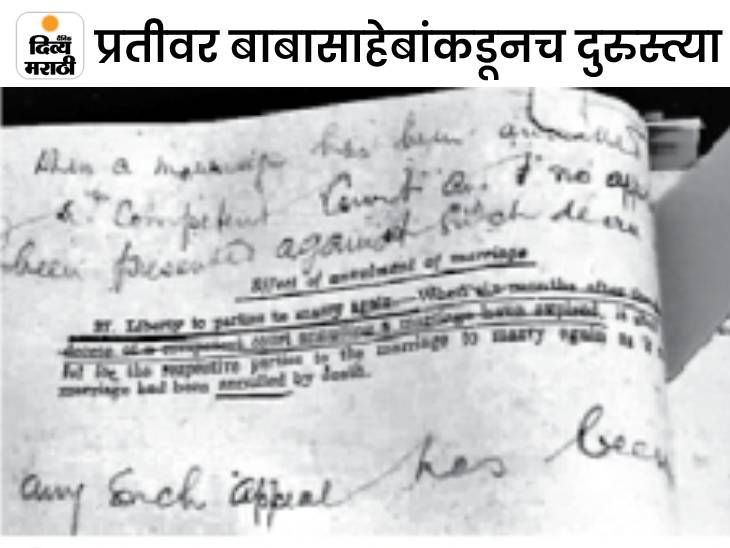 दैनिक
दिव्य
मराठी
प्रतीवर बाबासाहेबांकडूनच दुरुस्त्या
When a marriage has been annulled
Competent Court and no
been presented against such decree
Effect of annulment of marriage
Liberty to parties to marry again.— When six months after the
decree of a competent court annulling a marriage have expired, it
for the respective parties to the marriage to marry again as if
marriage had been annulled by death.
any such appeal has been